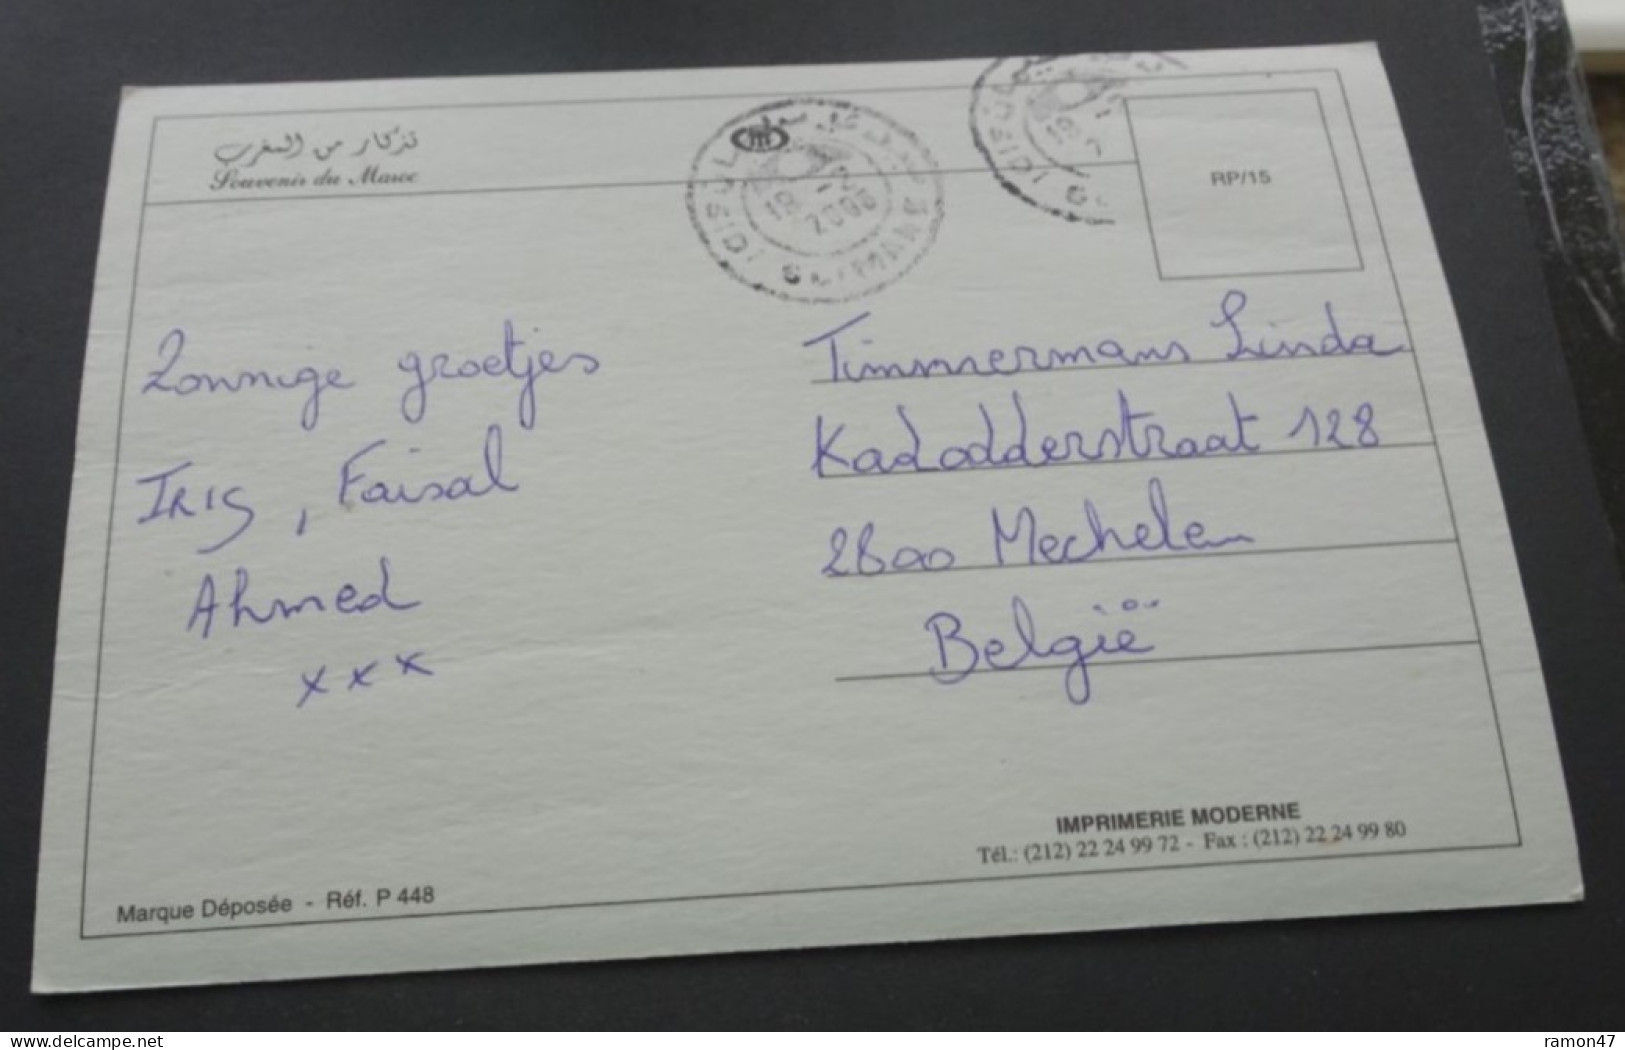 تذكار من المغرب
Souvenir du Maroc
SIDI SLIMANE
2008
SIDI S
RP/15
Zonnige groetjes
IRIS, Faisal
Ahmed
x x x
Timmermans Linda
Kadodderstraat 128
2800 Mechelen
België
IMPRIMERIE MODERNE
Tél.: (212) 22 24 99 72 - Fax : (212) 22 24 99 80
Marque Déposée - Réf. P 448
delcampe.net
ramon47